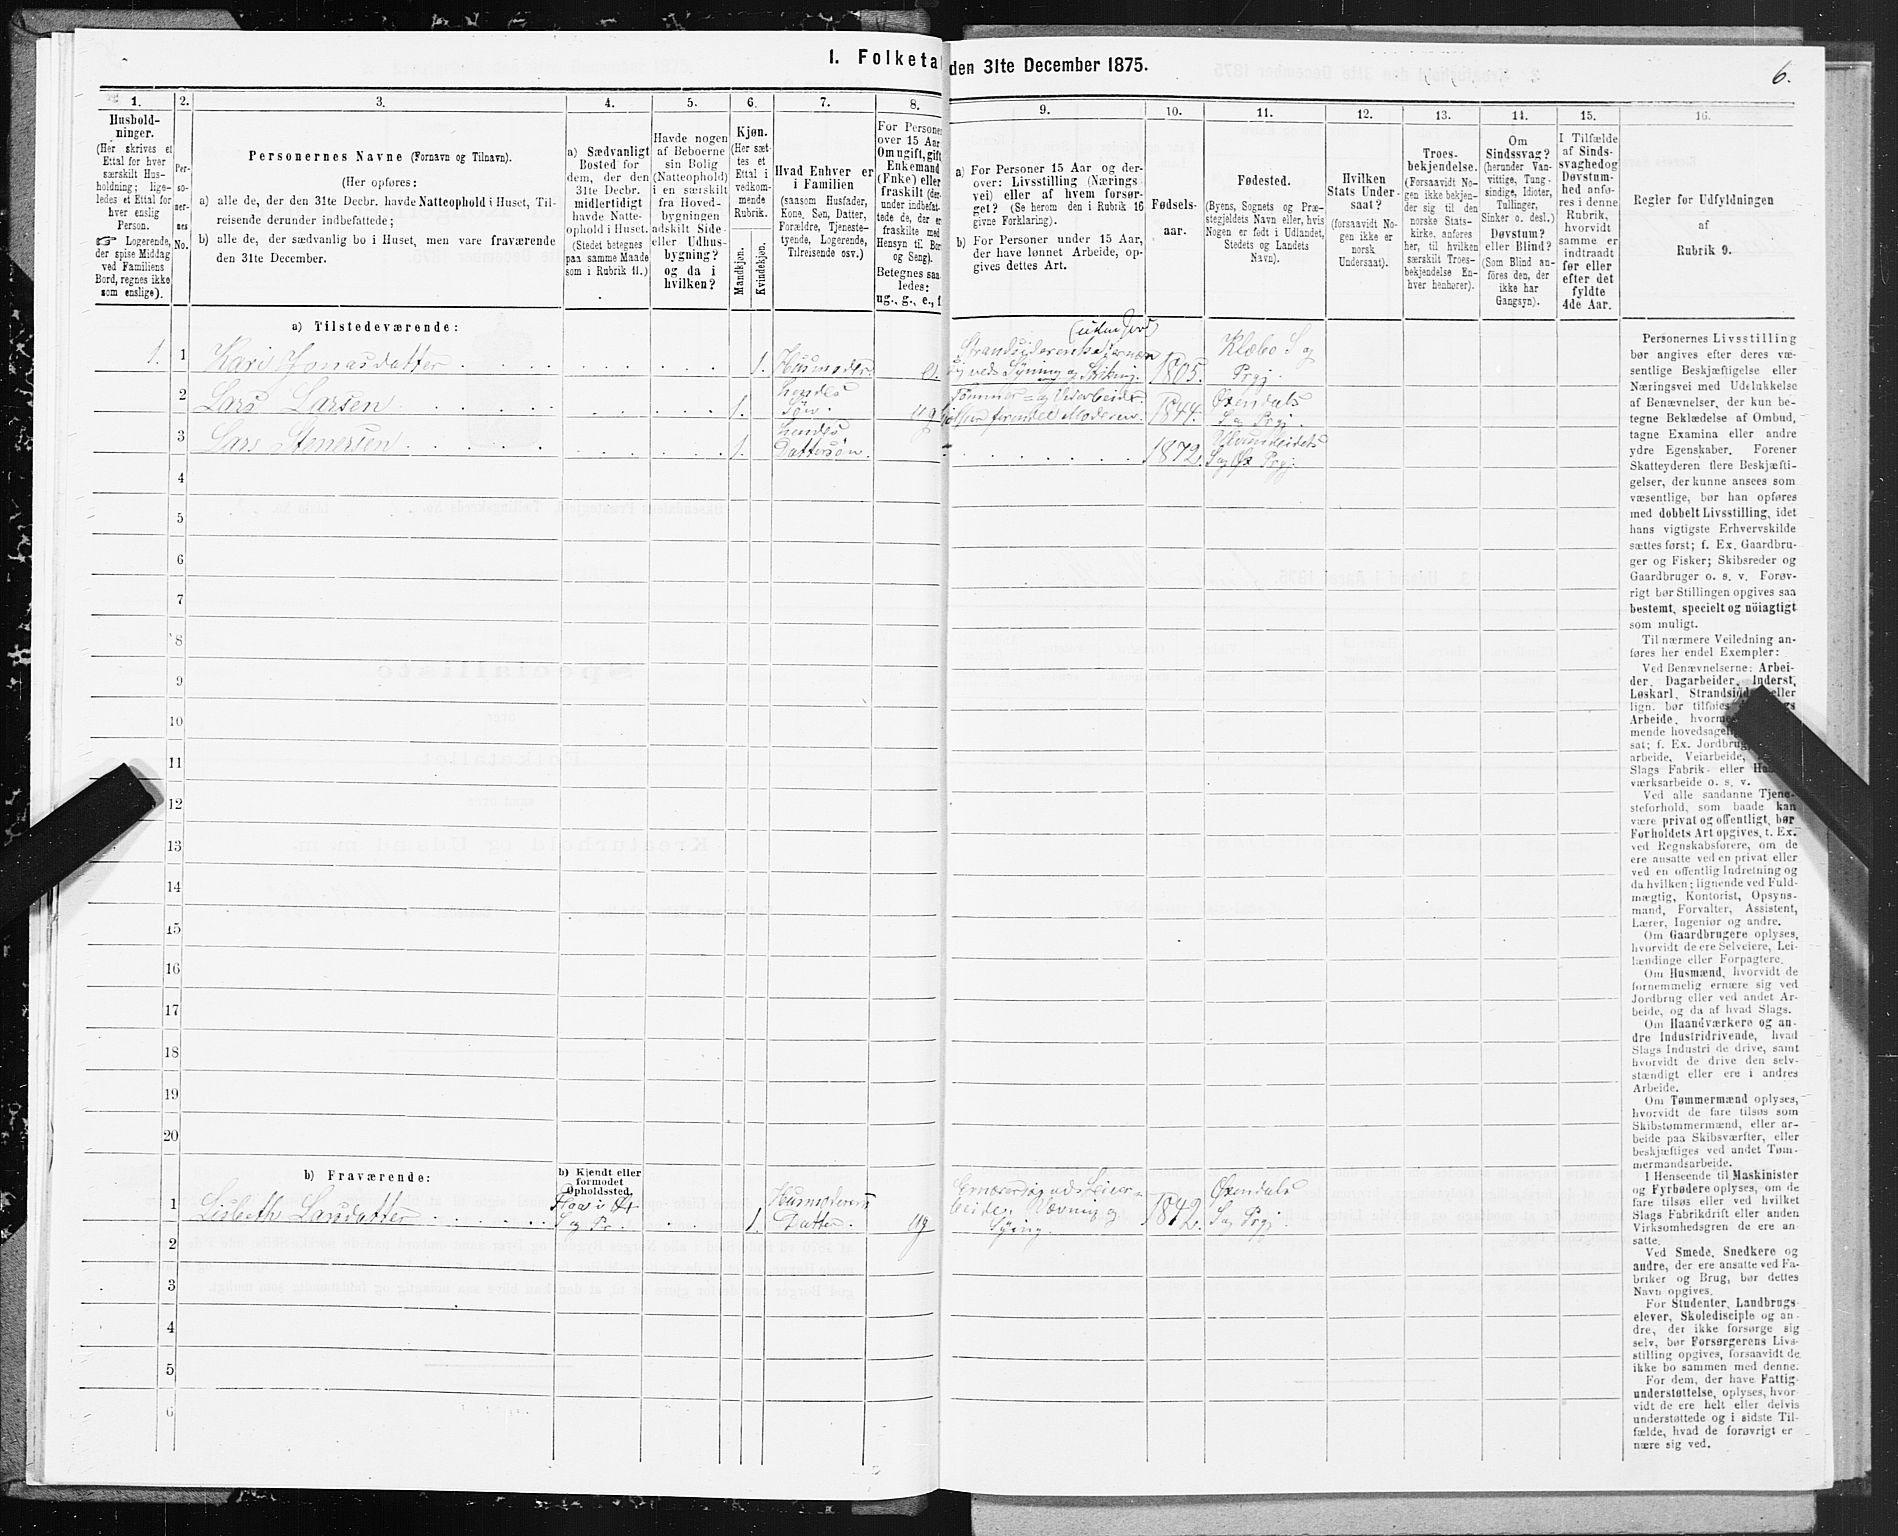 I. Folketal
den 31te December 1875.
6.
1.
Hushold-
ninger.
(Her skrives et
Ettal for hver
særskilt Hus-
holdning; lige-
ledes et Ettal for
hver enslig
Person.
☞ Logerende,
der spise Middag
ved Familiens
Bord, regnes ikke
som enslige).
2.
Per-
so-
ner-
nes
No.
3.
Personernes Navne (Fornavn og Tilnavn).
(Her opføres:
a) alle de, der den 31te Decbr. havde Natteophold i Huset, Til-
reisende derunder indbefattede;
b) alle de, der sædvanlig bo i Huset, men vare fraværende
den 31te December.
4.
a) Sædvanligt
Bosted for
dem, der den
31te Decbr.
midlertidigt
havde Natte-
ophold i Huset.
(Stedet betegnes
paa samme Maade
som i Rubrik 11.)
5.
Havde nogen
af Beboerne
sin Bolig
(Natteophold)
i en særskilt
fra Hoved-
bygningen
adskilt Side-
eller Udhus-
bygning?
og da i
hvilken?
6.
Kjøn.
(Her sæt-
tes et
Ettal i
vedkom-
mende
Rubrik.
Mandkjøn.
Kvindekjøn.
7.
Hvad Enhver er
i Familien
(saasom Husfader,
Kone, Søn, Datter,
Forældre, Tjeneste-
tyende, Logerende,
Tilreisende osv.)
8.
For Persone
over 15 Aar
Om ugift, gift
Enkemand
(Enke) eller
fraskilt (der-
under indbefat-
tede de, der er
fraskilte med
Hensyn til Bor
og Seng).
Betegnes saa
ledes:
ug., g., e., f.
9.
a) For Personer 15 Aar og der-
over: Livsstilling (Nærings
vei) eller af hvem forsør-
get? (Se herom den i Rubrik 16
givne Forklaring).
b) For Personer under 15 Aar,
der have lønnet Arbeide, op-
gives dettes Art.
10.
Fødsels-
aar.
11.
Fødested.
(Byens, Sognets og Præ-
stegjeldets Navn eller, hvis
Nogen er født i Udlandet,
Stedets og Landets
Navn).
12.
Hvilken
Stats Under-
saat?
(forsaavidt No-
gen ikke er
norsk
Undersaat).
13.
Troes-
bekjendelse.
(Forsaavidt No-
gen ikke bekjen-
der sig til den
norske Stats-
kirke, anføres
her, til hvilken
særskilt Troes-
bekjendelse En-
hver henhører).
14.
Om
Sindssvag?
(herunder Van-
vittige, Tung-
sindige, Idioter,
Tullinger,
Sinker o. desl.)
Døvstum?
eller Blind?
(Som Blind an-
føres den, der
ikke har
Gangsyn).
15.
I Tilfælde
af Sinds-
svaghedog
Døvstum-
hed anfø-
res i denne
Rubrik,
hvorvidt
samme er
indtraadt
før eller
efter det
fyldte
4de Aar.
16.
Regler for Udfyldningen
af
Rubrik 9.
a) Tilstedeværende:
1. 1 Kari Jonasdatter 1. Husmoder. e. 1805. Klæbo S og
Prgj.
2 Lars Larsen 1. hendes
Søn. ug 1844. Øxendals
S og Prgj.
3 Lars Stenersen 1. hendes
Dattersøn. 1872. S og Øx Prgj.
4
5
6
7
8
9
10
11
12
13
14
15
16
17
18
19
20
b) Fraværende:
b) Kjendt eller
formodet
Opholdssted.
1 Lisbeth Larsdatter S og Pr. 1. Husmoderens
Datter. ug 1842. Øxendals
S og Prgj.
2
3
4
5
6
Personernes Livsstilling
bør angives efter deres væ-
sentlige Beskjæftigelse eller
Næringsvei med Udelukkelse
af Benævnelser, der kun be-
tegne Beklædelse af Ombud,
tagne Examina eller andre
ydre Egenskaber. Forener
Skatteyderen flere Beskjæfti-
gelser, der kunne ansees som
væsentlige, bør han opføres
med dobbelt Livsstilling, idet
hans vigtigste Erhvervskilde
sættes først; f. Ex. Gaardbru-
ger og Fisker; Skibsreder og
Gaardbruger o. s. v. Forøv-
rigt bør Stillingen opgives saa
bestemt, specielt og nöiagtigt
som muligt.
Til nærmere Veiledning an-
føres her endel Exempler:
Ved Benævnelserne: Arbei-
der, Dagarbeider, Inderst,
Løskarl, Strandsidder eller
lign. bør tilføies
Arbeide,
mende
sat; f. Ex. Jordbrug,
arbeide, Veiarbeide,
Slags Fabrik- eller
værksarbeide o. s. v.
Ved alle saadanne Tjene-
steforhold, som baade kan
være privat og offentligt, bør
Forholdets Art opgives, t. Ex.
ved Regnskabsførere, om de
ere ansatte ved en privat eller
ved en offentlig Indretning og
da hvilken; lignende ved Fuld-
mægtig, Kontorist, Opsyns-
mand, Forvalter, Assistent,
Lærer, Ingeniør og andre.
Om Gaardbrugere oplyses,
hvorvidt de ere Selveiere, Lei-
lændinge eller Forpagtere.
Om Husmænd, hvorvidt de
fornemmelig ernære sig ved
Jordbrug eller ved andet Ar-
beide, og da af hvad Slags.
Om Haandværkere og an-
dre Industridrivende, hvad
Slags Industri de drive, samt
hvorvidt de drive den selv-
stændigt eller ere i andres
Arbeide.
Om Tømmermænd oplyses,
hvorvidt de fare tilsøs som
Skibstømmermænd, eller ar-
beide paa Skibsværfter, eller
beskjæftiges ved andet Tøm-
mermandsarbeide.
I Henseende til Maskinister
og Fyrbødere oplyses, om de
fare tilsøs eller ved hvilket
Slags Fabrikdrift eller anden
Virksomhedsgren de ere an-
satte.
Ved Smede, Snedkere og
andre, der ere ansatte ved Fa-
briker og Brug, bør dettes
Navn opgives.
For Studenter, Landbrugs-
elever, Skoledisciple og an-
dre, der ikke forsørge sig
selv, bør Forsørgerens Livs-
stilling opgives, forsaavidt de
ikke bo sammen med denne.
For dem, der have Fattig-
understøttelse, oplyses, hvor-
vidt de ere helt eller delvis
understøttede og i sidste Til-
fælde, hvad de forøvrigt er
nære sig ved.